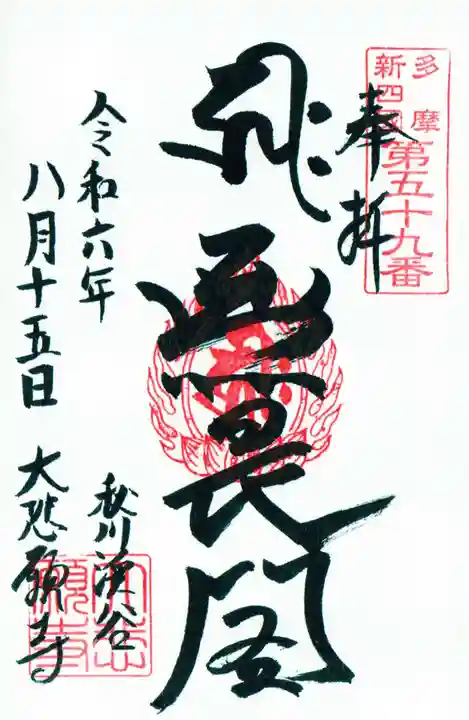 多摩
新四國
第五十九番
奉拝
無畏閣
令和六年
八月十五日
秋川渓谷
大悲願寺
大悲
願寺